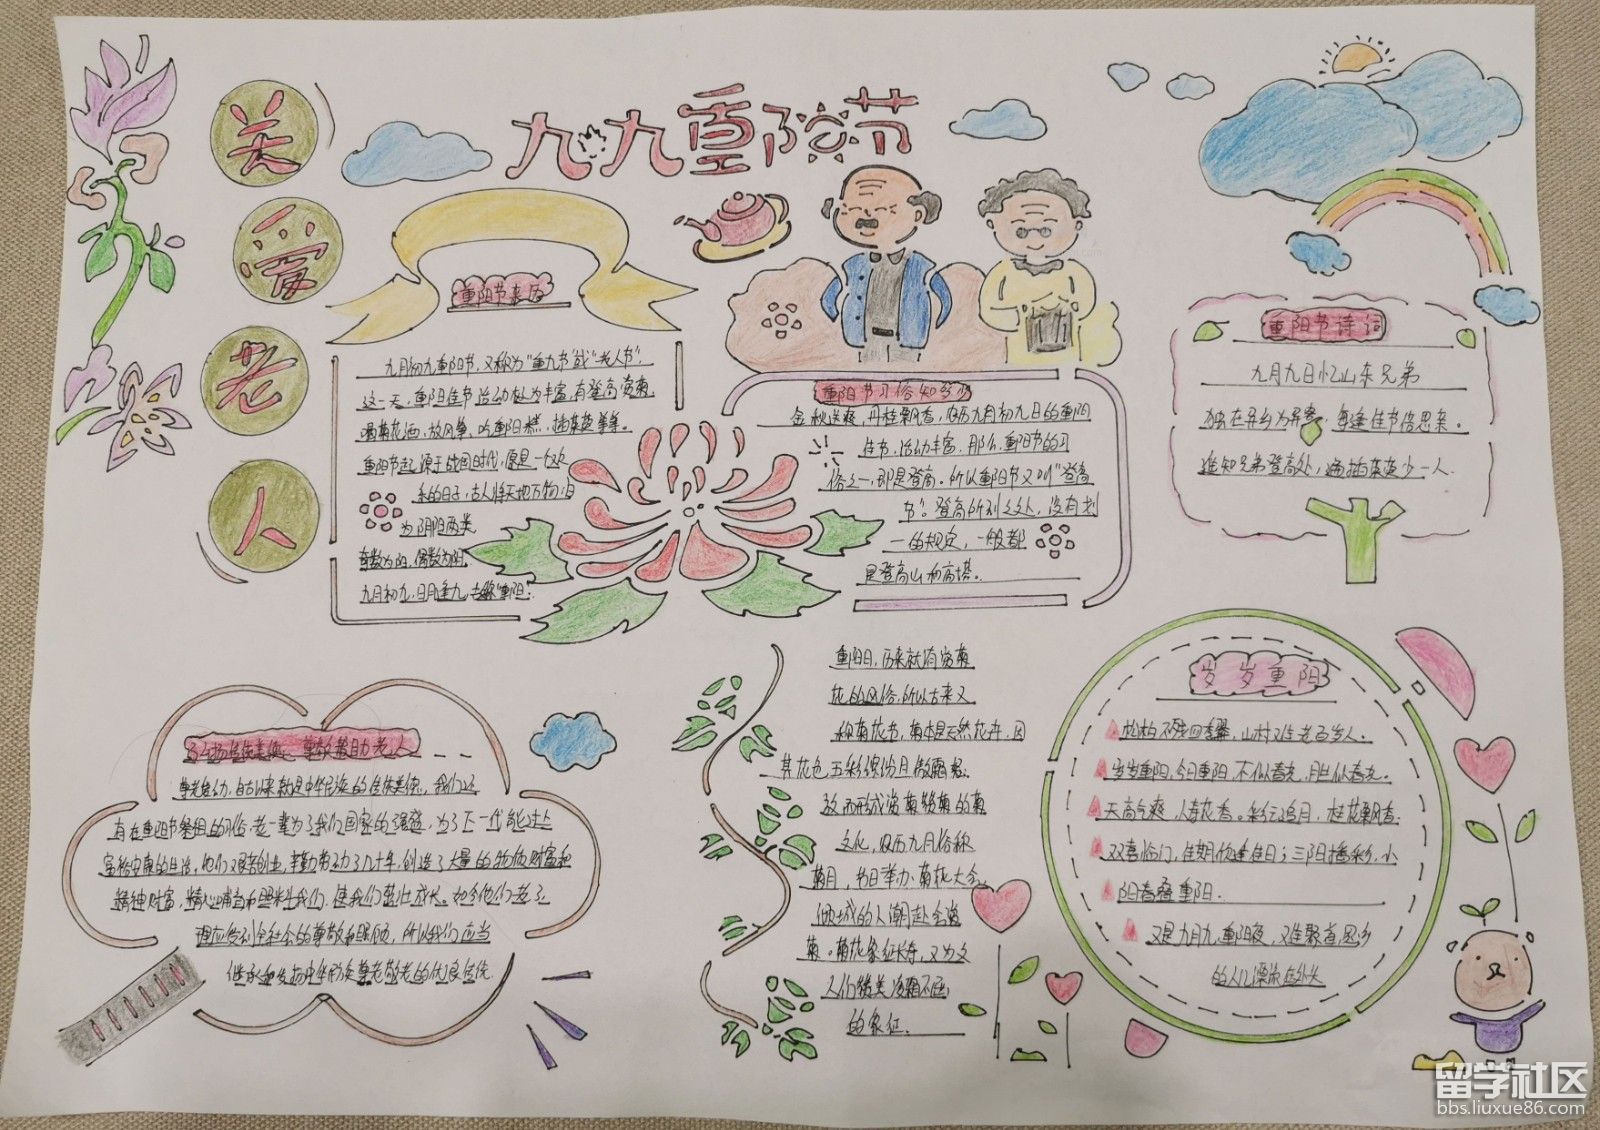 九九重阳节
关
爱
老
人
重阳节来历
九月初九重阳节，又称为“重九节”或“老人节”.
这一天，重阳佳节活动极为丰富，有登高赏菊，
喝菊花酒，放风筝，吃重阳糕，插茱萸等等。
重阳节起源于战国时代，原是一个欢
乐的日子，古人将天地万物归
为阴阳两类
奇数为阳，偶数为阴，
九月初九，日月逢九，
重阳节习俗知多少
金秋送爽，丹桂飘香，农历九月初九日的重阳
佳节，活动丰富，那么，重阳节的习
俗之一，即是登高。所以重阳节又叫“登高
节”。登高所到之处，没有划
一的规定，一般都
是登高山和高塔。
重阳节诗词
九月九日忆山东兄弟
独在异乡为异客，每逢佳节倍思亲。
遥知兄弟登高处，遍插茱萸少一人.
尊敬帮助老人
尊老爱幼，自古以来就是中华民族的传统美德，我们还
有在重阳节祭祖的习俗，老一辈为了我们国家的强盛，为了下一代能过上
富裕安康的生活，他们艰苦创业，辛勤劳动了几十年，创造了大量的物质财富和
精神财富，精心哺育和照料我们，使我们茁壮成长。如今他们老了
理应受到全社会的尊敬和照顾，所以我们应当
继承和发扬中华民族尊老敬老的优良传统.
重阳日，历来就有赏菊
花的风俗，所以古来又
称菊花节，菊本是天然花卉，因
其花色五彩缤纷且傲霜怒
放而形成赏菊颂菊的菊
文化，农历九月俗称
菊月，节日举办菊花大会，
倾城的人潮赴会赏
菊。菊花象征长寿，又为文
人们赞美凌霜不屈
的象征.
岁岁重阳
松柏不残四季翠，山村难老百岁人.
岁岁重阳，今日重阳，不似春光，胜似春光.
天高气爽，人寿花香。彩云追月，桂花飘香.
双喜临门，佳期又逢佳日；三阳播彩，小
阳春叠重阳.
又是九月九，重阳夜，难聚首，思乡
的人儿漂流在外头
留学社区
bbs.liuxue86.com